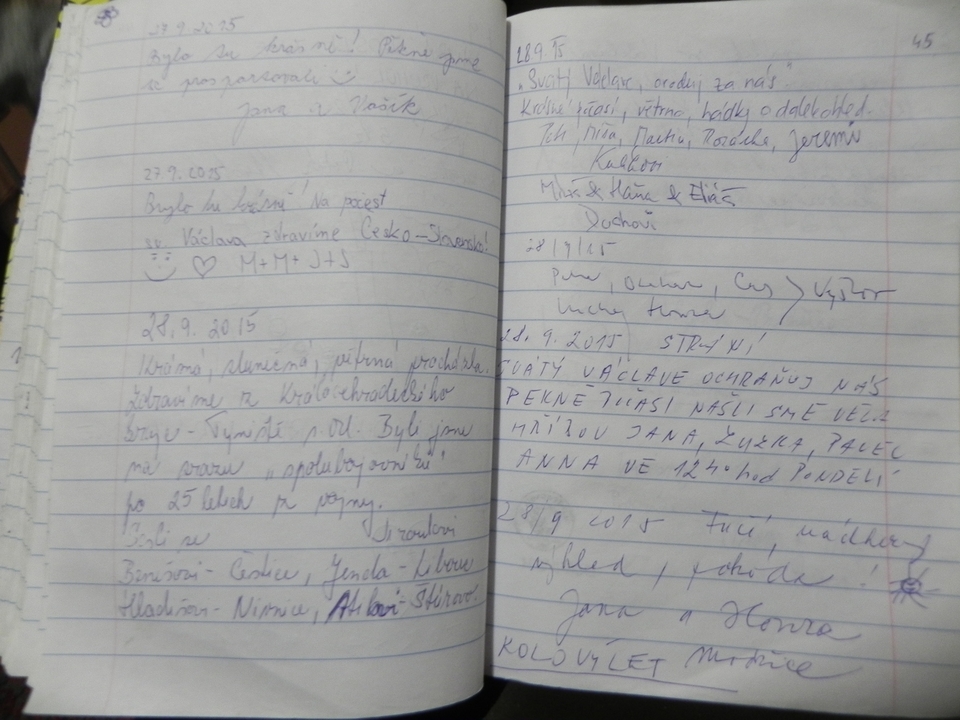 27.9.2015
Bylo tu krásně! Pěkně jsme
se prosparkovali
Jana a Vašík
27.9.2015
Bylo tu krásně! Na počest
sv. Václava zdravíme Česko-Slovensko!
M+M+J+J
28.9.2015
Krásná, slunečná, příjemná procházka.
Zdravíme z Královehradeckého
kraje - Týniště n. Orl. Byli jsme
na srazu „spolubojovníků"
po 25 letech z vojny.
Benešovi - Čestice, Jenda - Libuše
Hladišovi - Nivnice,
45
28.9.15
„Svatý Václave, oroduj za nás."
Krásné počasí, větrno, hádky o dalekohled.
Petr, Míša, Martin, Jeremi
Miloš & Hana & Eliáš
Duchovi
28/9/15
28.9.2015 STRÁNÍ
SVATÝ VÁCLAVE OCHRAŇUJ NÁS
PĚKNÉ POČASÍ NAŠLI SME VELA
HŘÍBOV JANA, ZUZKA, PALEC
ANNA VE 12 40 hod PONDELÍ
28/9 2015 Fučí, nádherný
výhled, pohoda!
Jana a Honza
KOLOVÝLET